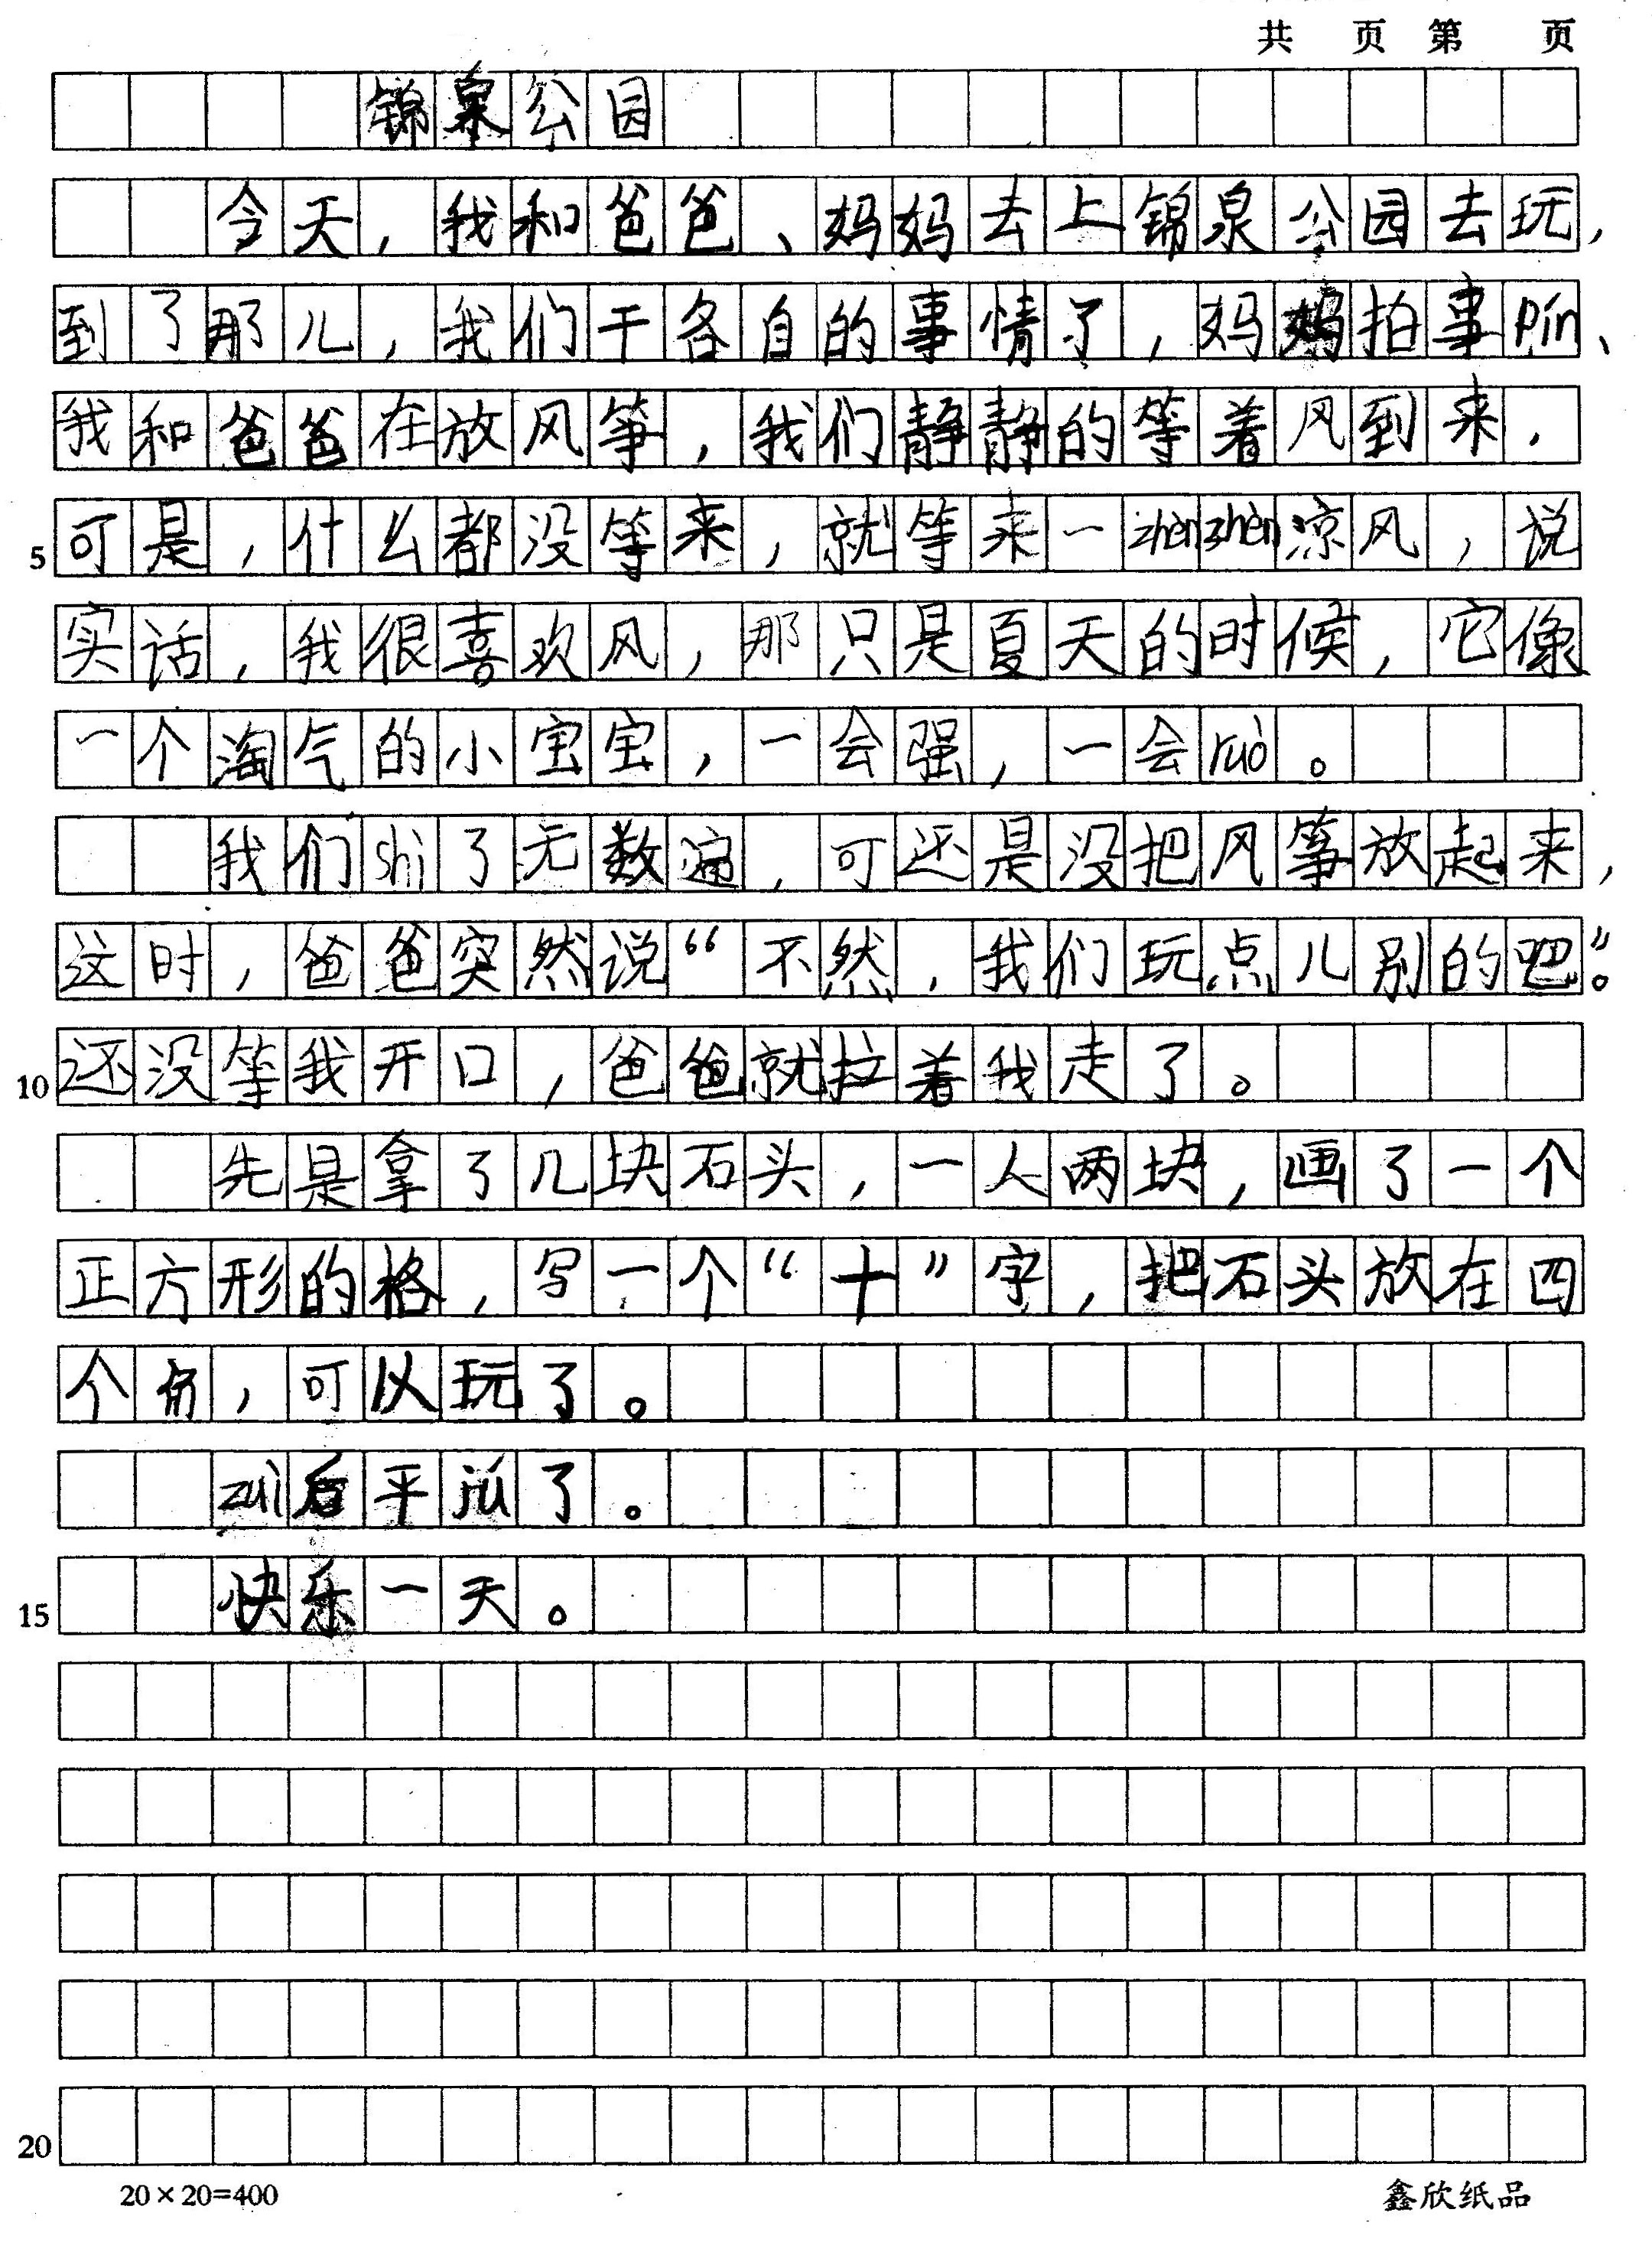 共 页 第 页
锦泉公园
今天，我和爸爸、妈妈去上锦泉公园去玩，
到了那儿，我们干各自的事情了，妈妈拍事pín、
我和爸爸在放风筝，我们静静的等着风到来，
5 可是，什么都没等来，就等来一zhènzhèn凉风，说
实话，我很喜欢风，那只是夏天的时候，它像
一个淘气的小宝宝，一会强，一会ruò。
我们shì了无数遍，可还是没把风筝放起来，
这时，爸爸突然说“不然，我们玩点儿别的吧”。
10 还没等我开口，爸爸就拉着我走了。
先是拿了几块石头，一人两块，画了一个
正方形的格，写一个“十”字，把石头放在四
个，可以玩了。
zuì后平jú了。
15 快乐一天。
20
20×20=400 鑫欣纸品